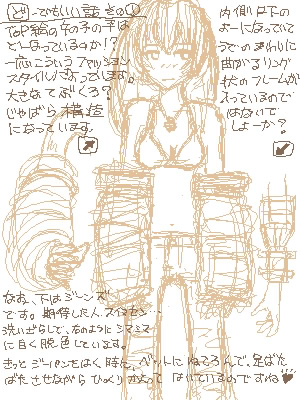 どーでもいい話 その①
TOP絵の女の子の手は
どーなっているのか!?
一応こういうファッション
スタイルになっています。
大きなてぶくろ?
じゃばら構造
になっています。
内側は以下の
よーになっていて
うでのまわりに
曲がるリング
状のフレームが
入っているので
はないで
しょーか?
なお、下はジーンズ
です。期待した人、スイマセン…
洗いざらしで、右のようにシマシマ
に白く脱色しています。
きっとジーパンをはく時に、ベットにねころんで、足ばた
ばたさせながら ひっくりかえって はいているのですね♥